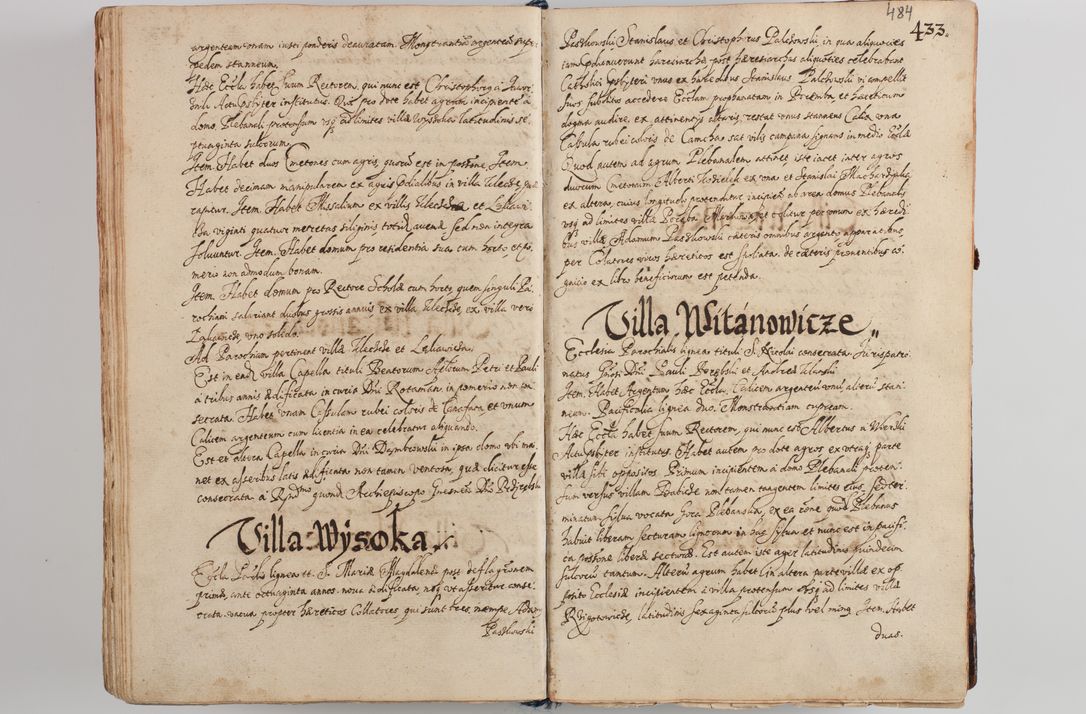 argenteam vnam iusti ponderis deauratam. Monstrantiã argenteã super
pedem stanneum.
Hæc Eccla habet suum Rectorem, qui nunc est Christophorus à
Actu psbyter institutus. Qui pro dote habet agrum incipientem à
domo Plebanali protensum vsq̃ ad limites villæ Wysoka latitudinis se,
ptuaginta sulcorum.
Item Habet duos Cmetones cum agris, quorũ est in possone. Item
Habet decimam manipularem ex agris prædialibus in villa
Item. Habet Missalium ex villis et
ka viginti quatuor metretas siliginis totidẽ auenæ sed non integra
soluuntur. Item. Habet domum pro residentia sua cum horto, et po,
merio non admodum bonam.
Item. Habet domum pro Rectore Scholæ cum horto, quem singuli Pa,
rochiani salariant duobus grossis annuis ex villa ex villa vero
vno solido.
Ad Parochiam pertinent villæ et
Est in eadẽ villa Capella tituli Beatorum Aplorum Petri et Pauli
à tribus annis ædificata in curia Dñi in pomerio non con,
secrata. Habet vnam Casulam rubei coloris de et vnum
Calicem argenteum cum licentia in ea celebratur aliquando.
Est et altera Capella in curia Dñi Dembrowski in ipsa domo vbi ma,
net ex asseribus latis ædificata non tamen ventosa, quæ dicitur esse
consecrata à Rndmo quondã Archiepiscopo Gnesneñ Dño
Villa Wysoka.
Eccla Parlis lignea tt. S. Mariæ Magdalenæ post deflagraõnem
primæ, ante octuaginta annos noua ædificata neq̃ vt asseritur conse,
crata vacua propter hæreticos Collatores qui sunt tres, nempe Adam,
Paszkowski
484
433.
Paszkowski Stanislaus et Christophorus Palczowski, in qua aliquoties
iam prædicauerunt hæresiarchæ post hæresiarchas aliquoties celebrabant
Catholici psbyteri vnus ex hæredibus Stanislaus Palczowski vi compellit
suos subditos accedere Ecclam prophanatam in et hæreticum
dogma audire, ex attinentijs altaris, restat vnus stanneus Calix vna
Casula rubei coloris de Camcha sat vilis campana signans in medio Ecclæ
Quod autem ad agrum Plebanalem attinet iste iacet inter agros
duorum Cmetonum Alberti ex vna et Stanislai
ex altera, cuius longitudo protenditur incipiendo ab area domus Plebanalis
vsq̃ ad limites villæ et colitur per vnum ex hæredi
bus villæ Adamum Paszkowski cæteris omnibus argento apparatibus,
per Collatores viros hæreticos est spoliata. de cæteris prouentibus co,
gnitio ex libro beneficiorum est petenda.
Villa Witánowicze,,
Ecclesia Parochialis lignea tituli S. Nicolai consecrata. Iurispatro,
natus Gñosi Dñi Pauli et Andreæ
Item. Habet Argentum hæc Eccla. Calicem argenteũ vnũ alterũ stan,
neum. Pacificalia lignea duo. Monstrantiam cupream.
Hæc Eccla habet suum Rectorem, qui nunc est Albertus
Actu psbyter institutus. Habet autem pro dote agros ex vtraq̃ parte
villæ sibi oppositos Primum incipientem à domo Plebanali proten,
sum versus villam Babicæ non tamen tangentem limites eius, sed ter,
minatur sylua vocata Gora Plebanska, ex ea rõne quod Plebanus
habuit liberam secturam lignorum in hac sylua et nunc est in pacifi,
ca possone liberæ secturæ. Est autem iste ager latitudinis vndecim
sulcorũ tantum. Alterũ agrum habet in altera parte villæ ex op,
posito Ecclesiæ incipientem à villa protensum vsq̃ ad limites villæ
latitudinis sexaginta sulcorũ plus vel minus. Item. Habet
duas.